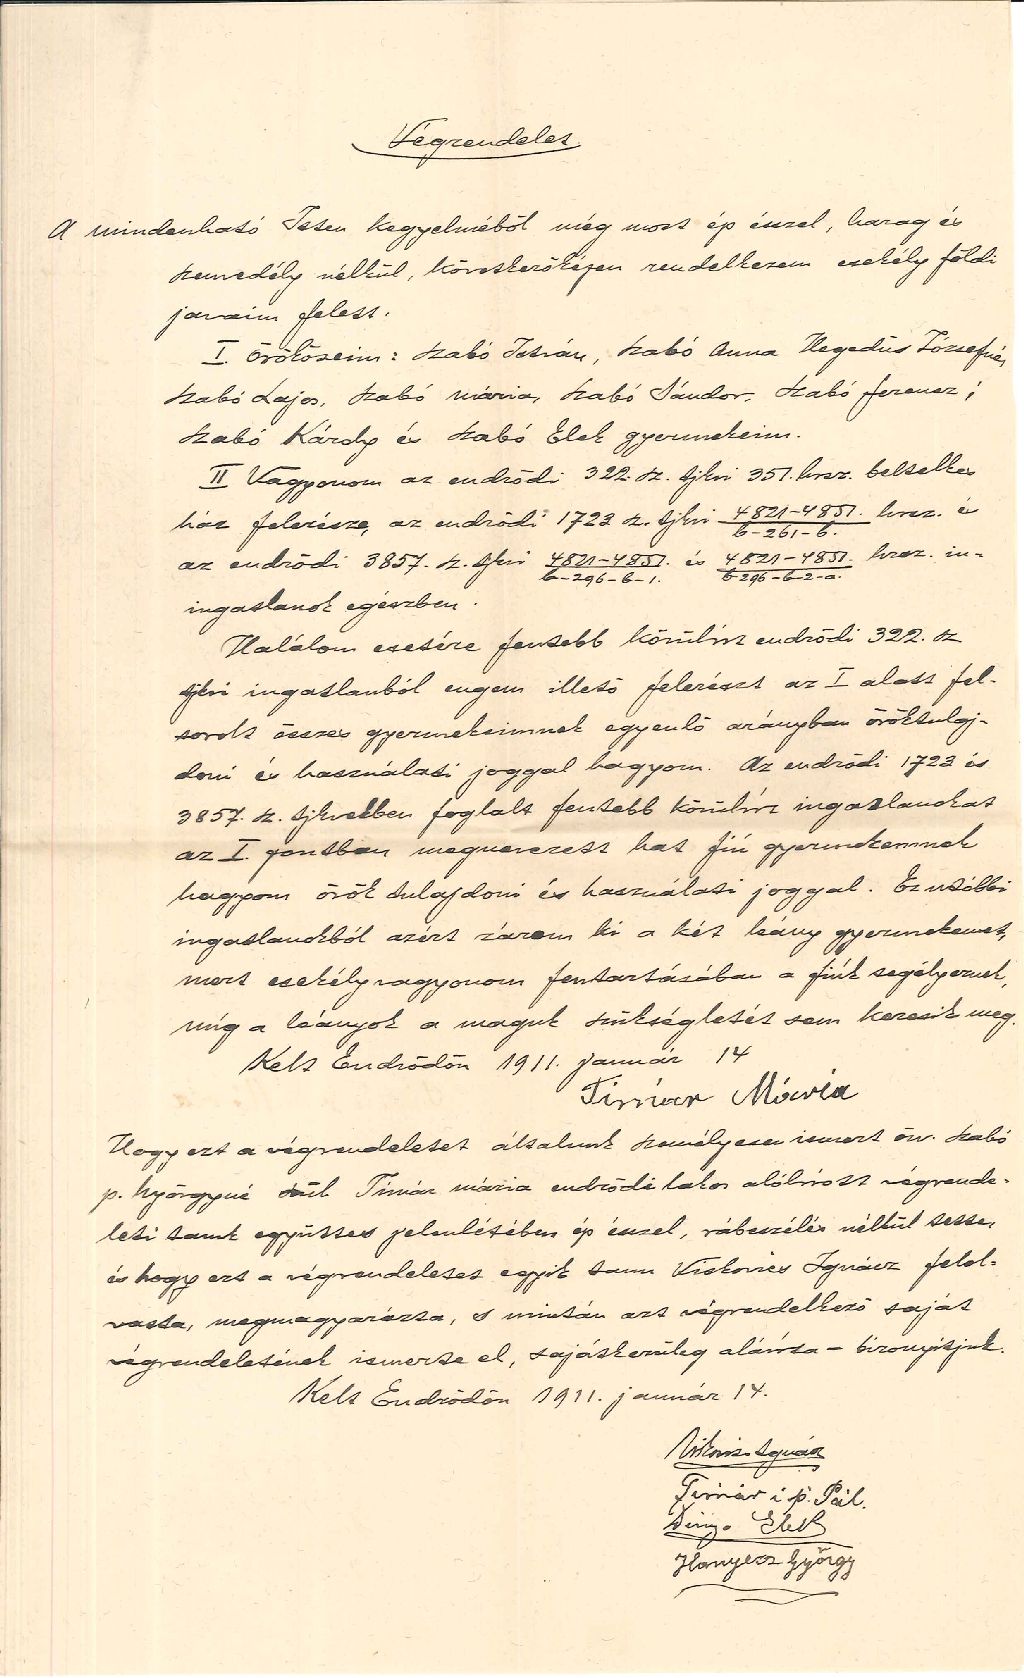 Végrendelet
A mindenható Isten kegyelméből még most ép ésszel, harag és
szenvedély nélkül, következőképen rendelkezem csekély földi
javaim felett.
I. Örököseim: Szabó István, Szabó Anna Hegedüs Józsefné,
Szabó Lajos, Szabó Mária, Szabó Sándor, Szabó Ferencz,
Szabó Károly és Szabó Elek gyermekeim.
II Vagyonom az endrődi 322. sz. tjkvi 351. hrsz. beltelkes
ház felerésze, az endrődi 1723 sz. tjkvi 4821-4851./b-261-b. hrsz. és
az endrődi 3857. sz. tjkvi 4821-4851./b-296-b-1. és 4821-4851./b-296-b-2-a. hrsz. in-
ingatlanok egészben.
Halálom esetére fentebb körülírt endrődi 322. sz
tjkvi ingatlanból engem illető felerészt az I alatt fel-
sorolt összes gyermekeimnek egyenlő arányban öröktulaj-
doni és használati joggal hagyom. Az endrődi 1723 és
3857. sz. tjkvekben foglalt fentebb körülírt ingatlanokat
az I. pontban megnevezett hat fiú gyermekemnek
hagyom örök tulajdoni és használati joggal. Ez utóbbi
ingatlanokból azért zárom ki a két leány gyermekemet,
mert csekély vagyonom fentartásában a fiúk segélyeznek,
míg a leányok a maguk szükségletét sem keresik meg.
Kelt Endrődön 1911. január 14
Timár Mária
Hogy ezt a végrendeletet általunk személyesen ismert özv. Szabó
p. Györgyné szül Timár Mária endrődi lakos alólírott végrende-
leti tanuk együttes jelenlétében ép ésszel, rábeszélés nélkül tette,
és hogy ezt a végrendeletet egyik tanu Viskovics Ignácz felol-
vasta, megmagyarázta, s miután azt végrendelkező saját
végrendeletének ismerte el, sajátkezüleg aláírta - bizonyitjuk.
Kelt Endrődön 1911. január 14.
Viskovics Ignácz
Timár i p. Pál.
Elek
Hanyecz György